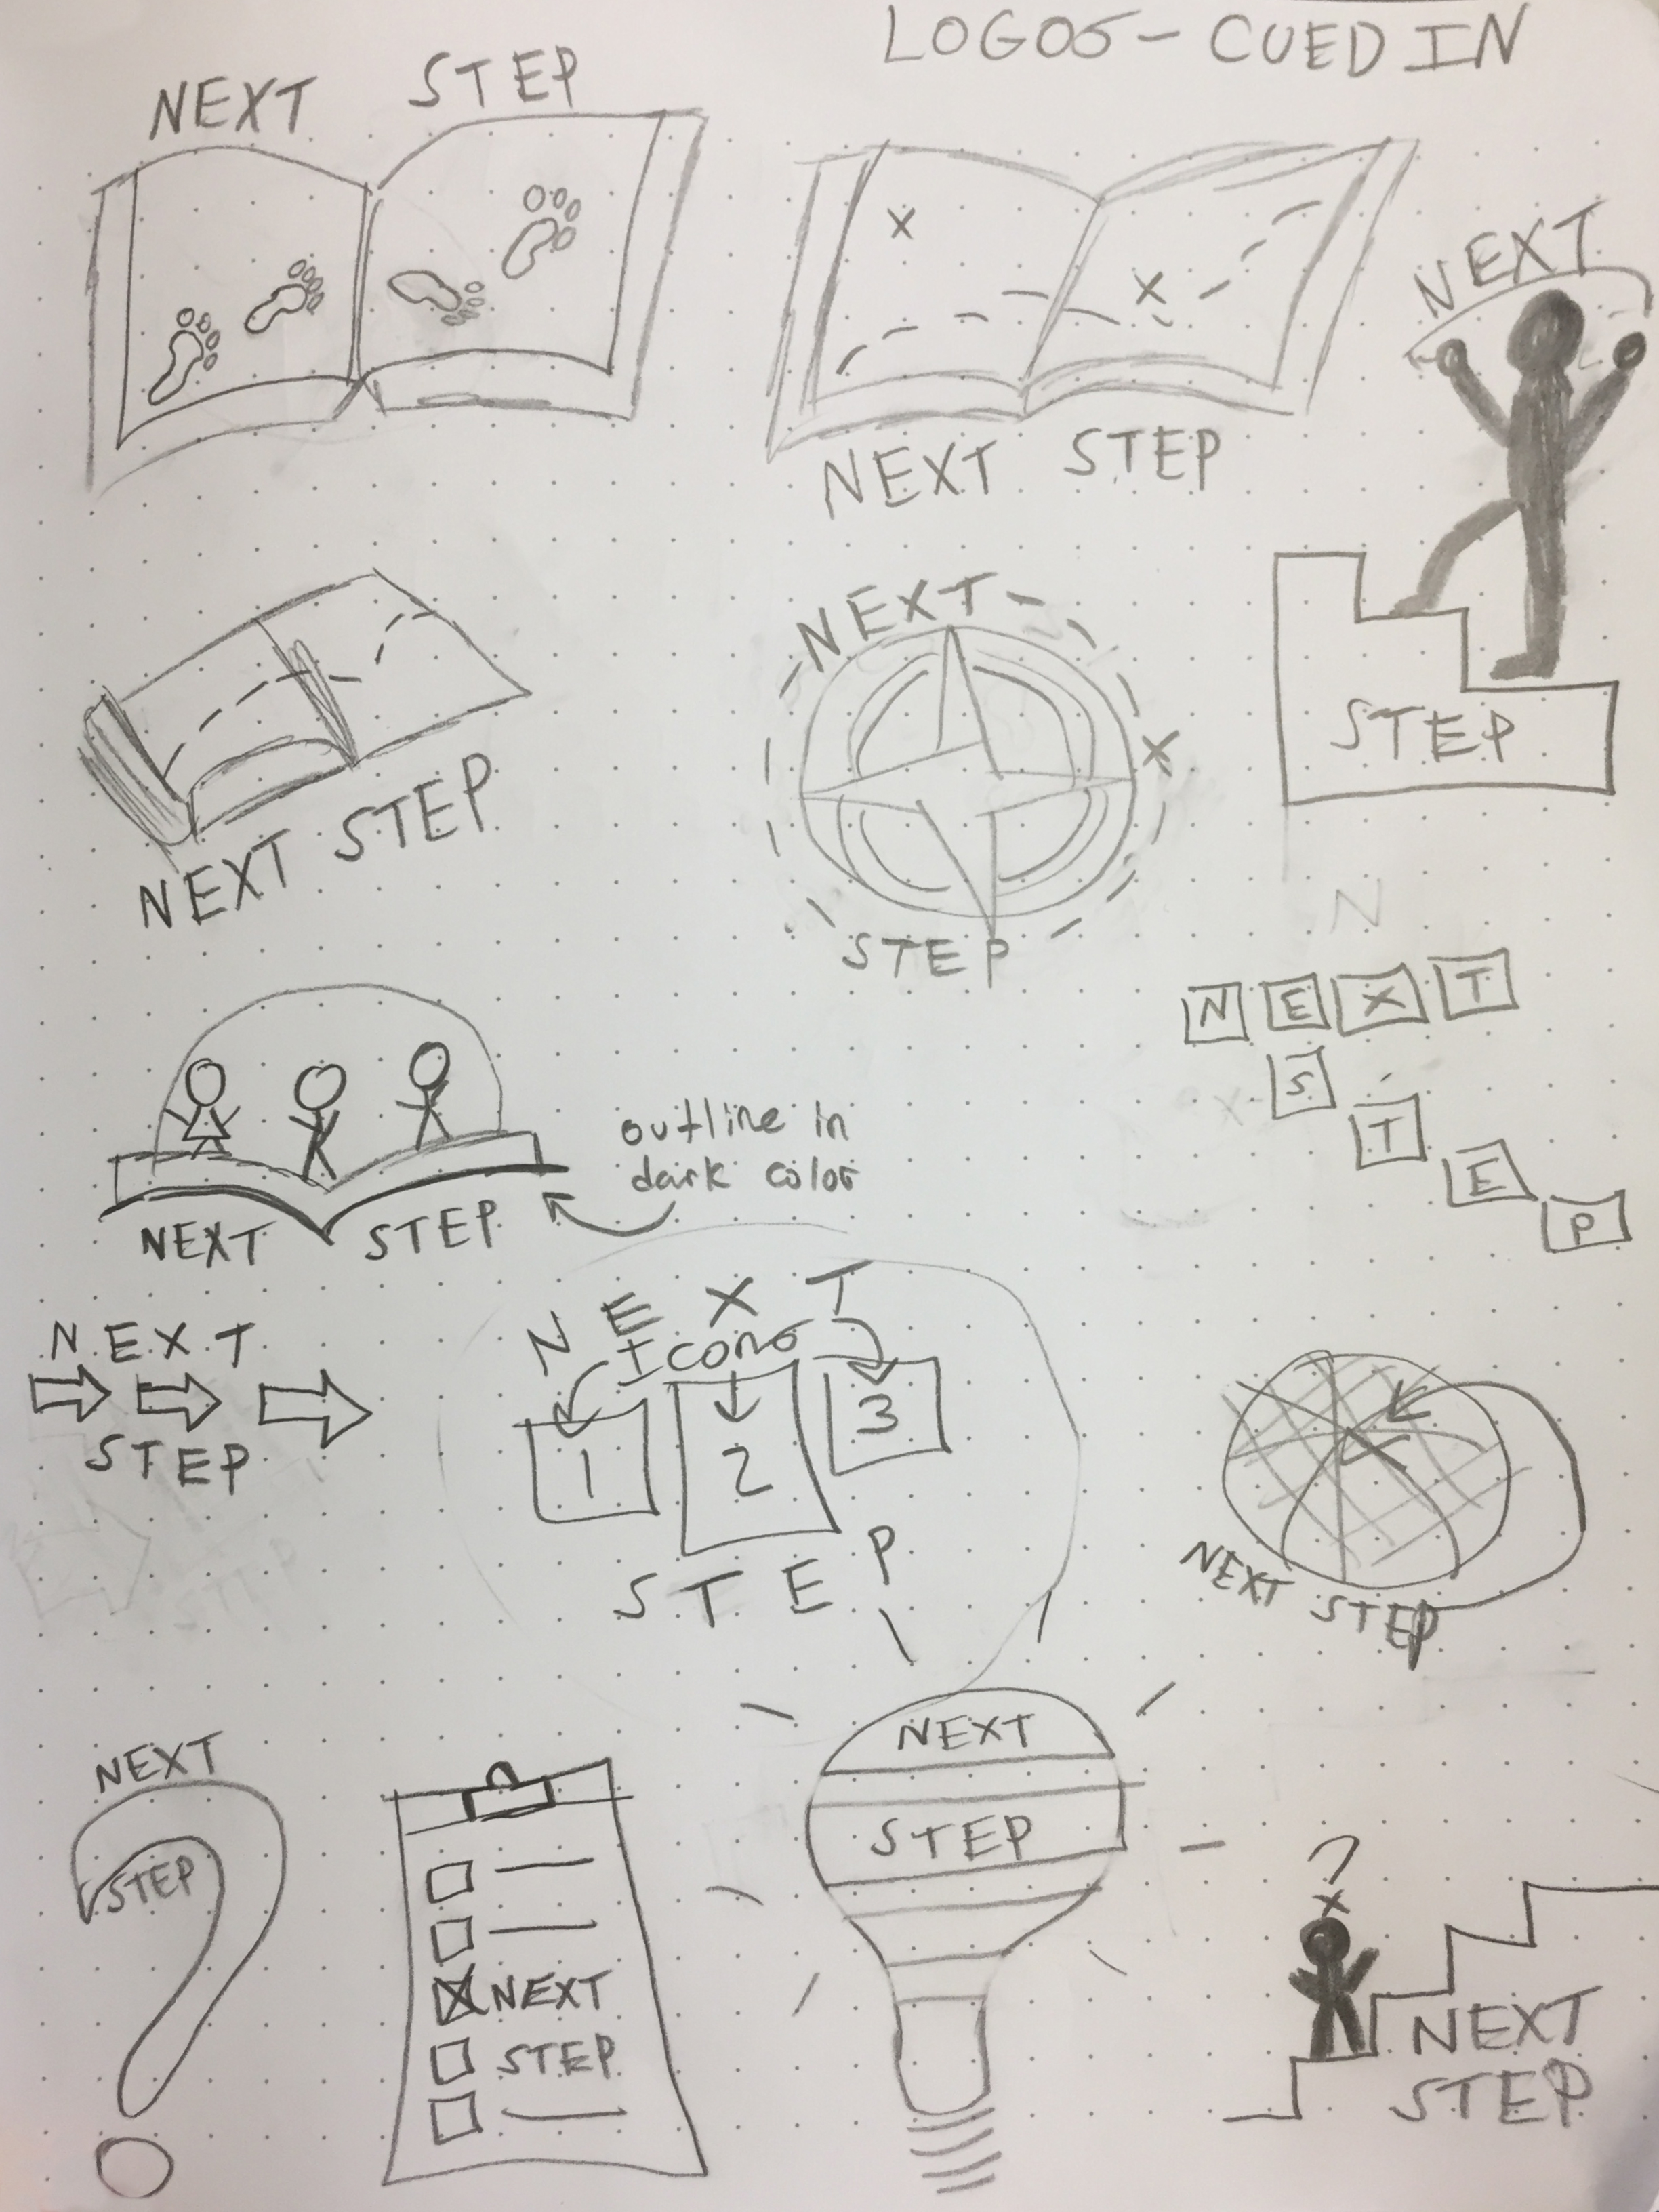 LOGOS - CUED IN
NEXT STEP
NEXT STEP
NEXT
STEP
NEXT STEP
NEXT
STEP
N
NEXT
S
T
E
P
outline in
dark color
NEXT STEP
NEXT
STEP
NEXT
Icons
1 2 3
STEP
NEXT STEP
NEXT
STEP
NEXT
STEP
NEXT
STEP
?
NEXT
STEP